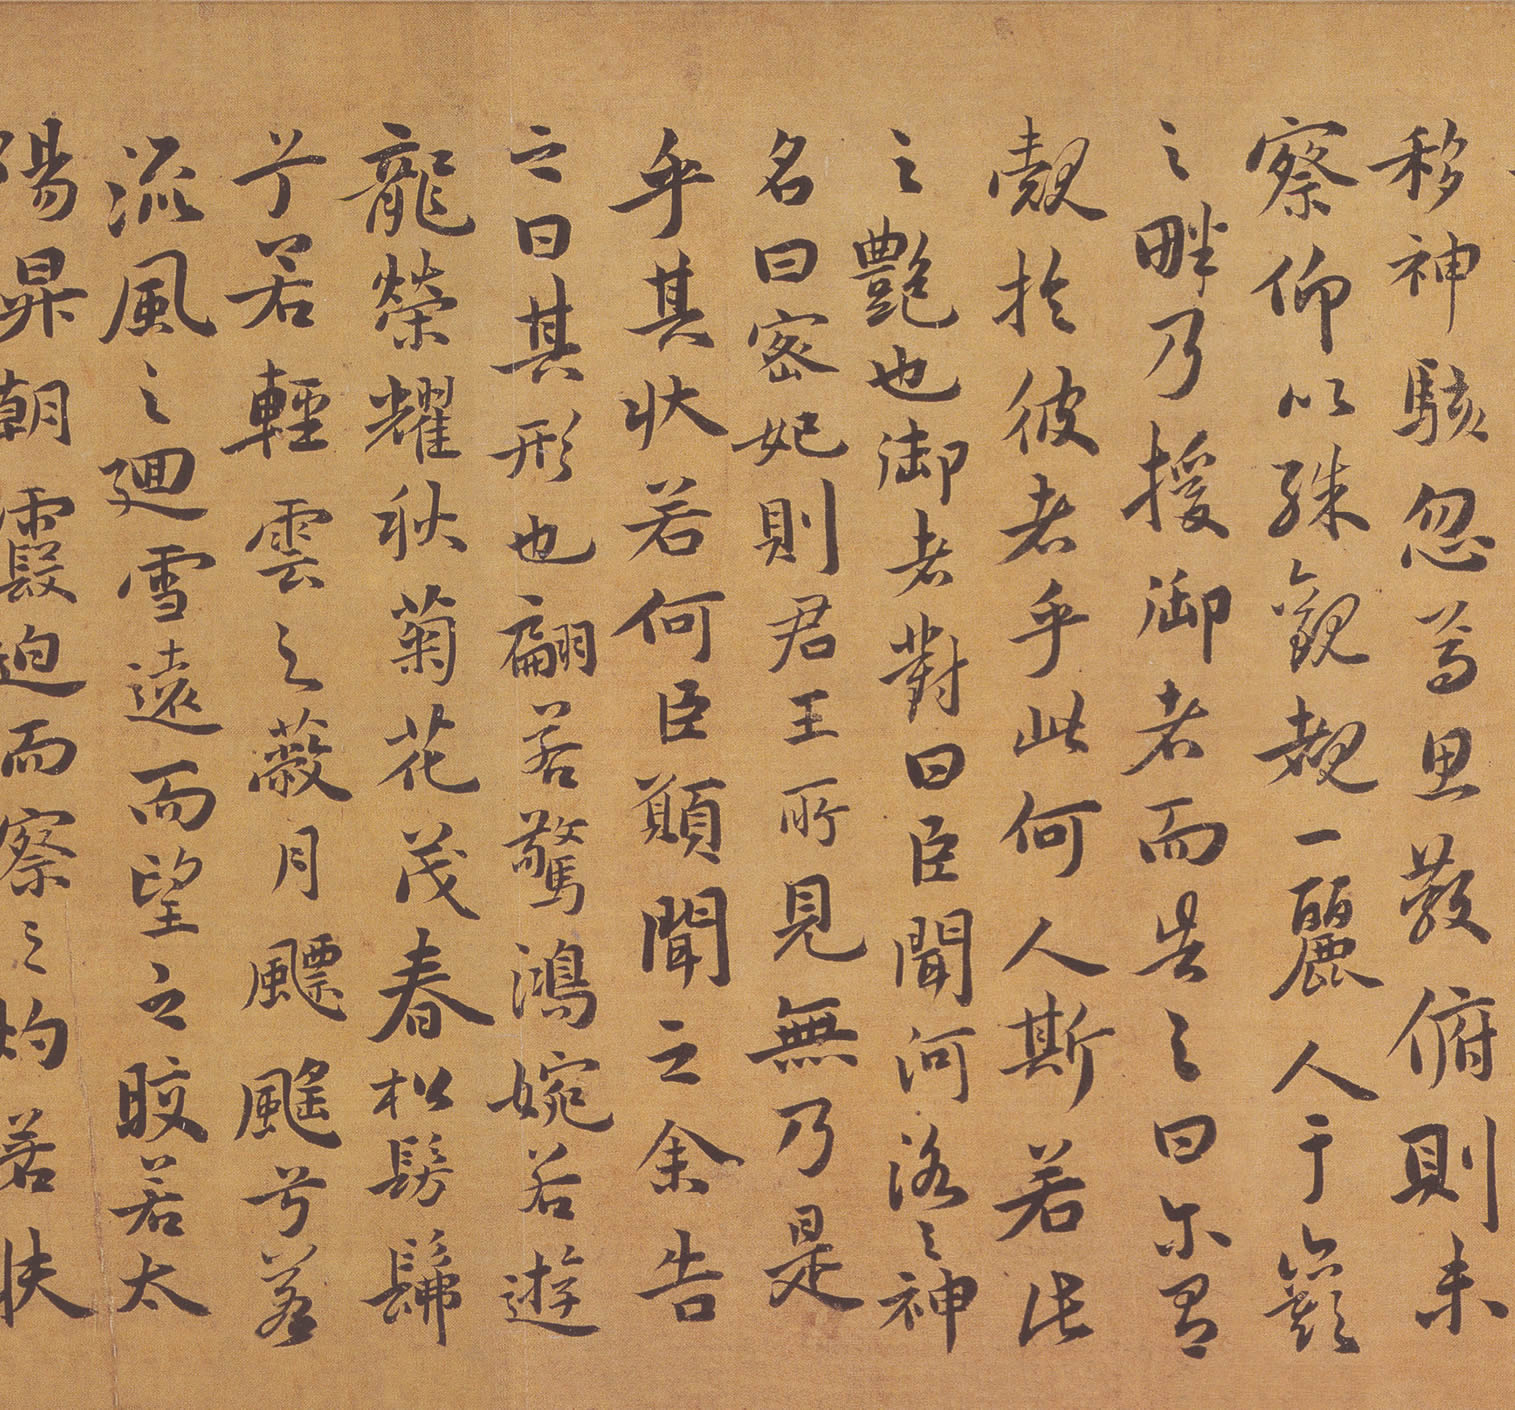 移神駭忽焉思散俯則未
察仰以殊觀覩一麗人于巖
之畔乃援御者而告之曰尔有
覿於彼者乎此何人斯若此
之艷也御者對曰臣聞河洛之神
名曰密妃則君王所見無乃是
乎其狀若何臣願聞之余告
之曰其形也翩若驚鴻婉若遊
龍榮耀秋菊花茂春松髣髴
兮若輕雲之蔽月飄颻兮若
流風之迴雪遠而望之皎若太
陽昇朝霞迫而察之灼若扶